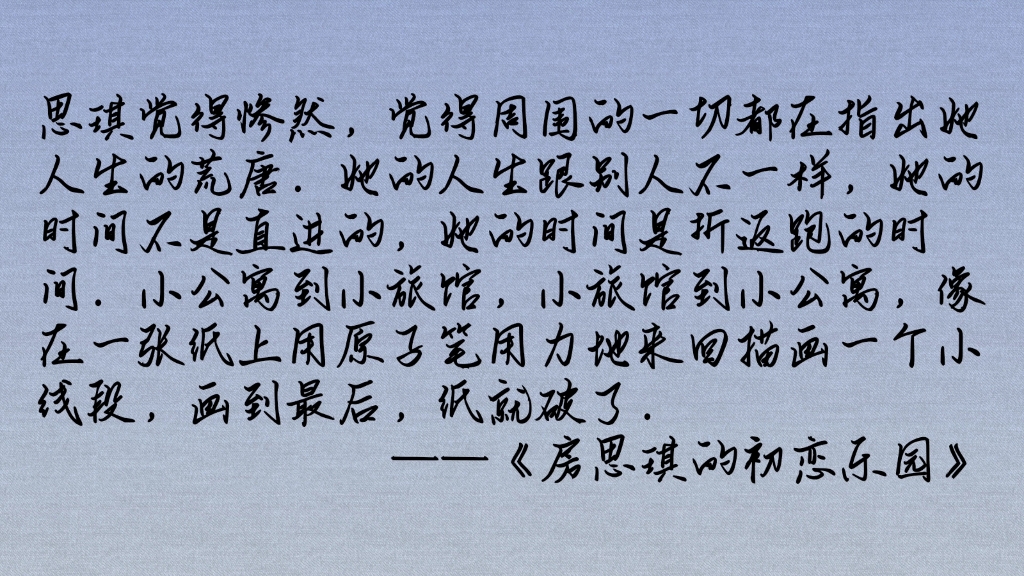 思琪觉得惨然，觉得周围的一切都在指出她
人生的荒唐．她的人生跟别人不一样，她的
时间不是直进的，她的时间是折返跑的时
间．小公寓到小旅馆，小旅馆到小公寓，像
在一张纸上用原子笔用力地来回描画一个小
线段，画到最后，纸就破了．
——《房思琪的初恋乐园》